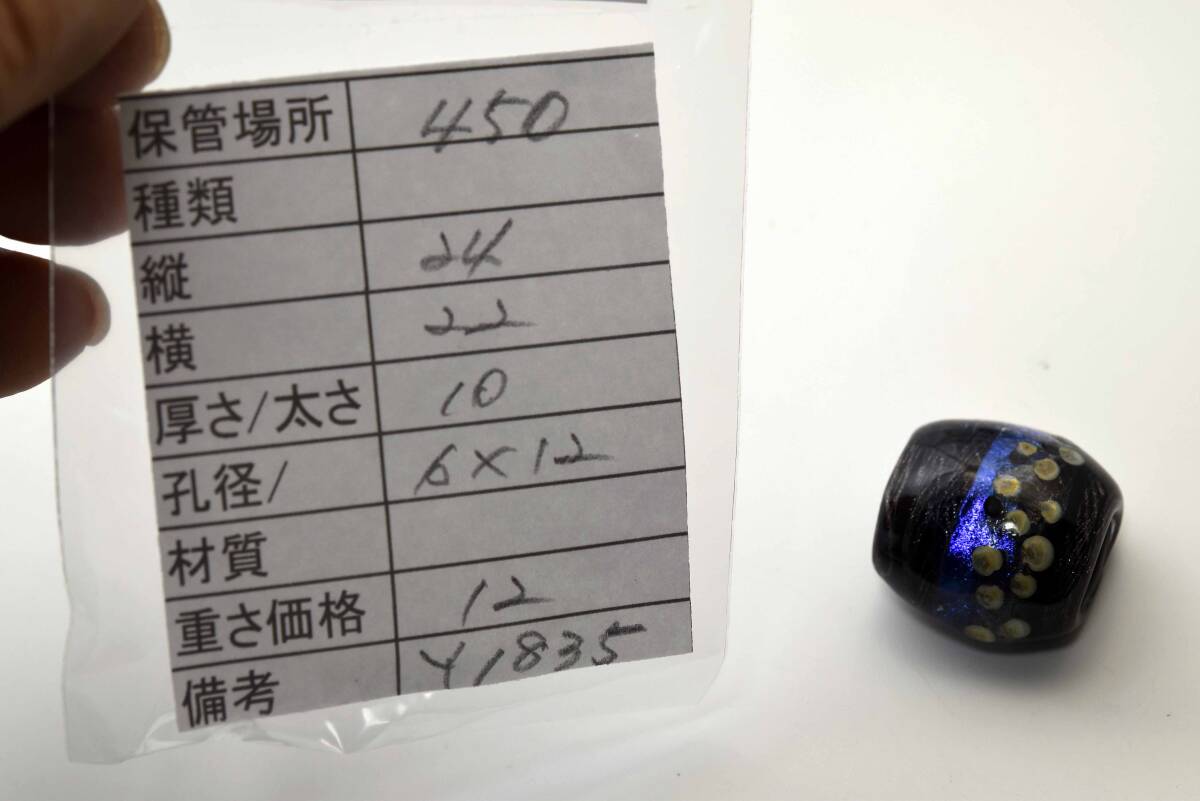 保管場所 450
種類
縦 24
横 22
厚さ/太さ 10
孔径/ 6×12
材質
重さ価格 12
備考 Y1835